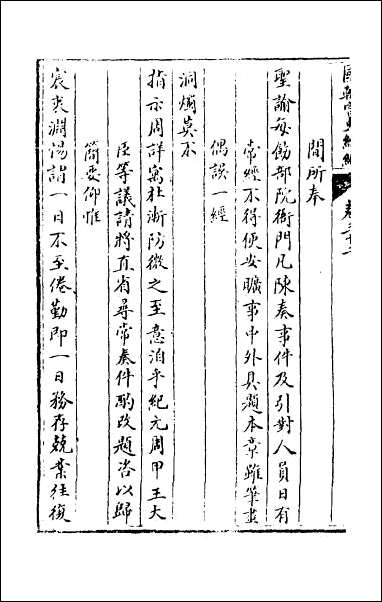 國朝宮史續編 卷三十二
間所奉
聖諭每飭部院衙門凡陳奏事件及引對人員日有
常經不得便安曠事中外具題本章雖筆畫
偶誤一經
洞燭莫不
指示周詳寓杜漸防微之至意洎乎紀元周甲王大
臣等議請將直省尋常奏件酌改題咨以歸
簡要仰惟
宸衷淵惕詣一日不至倦勤即一日務存兢業往復